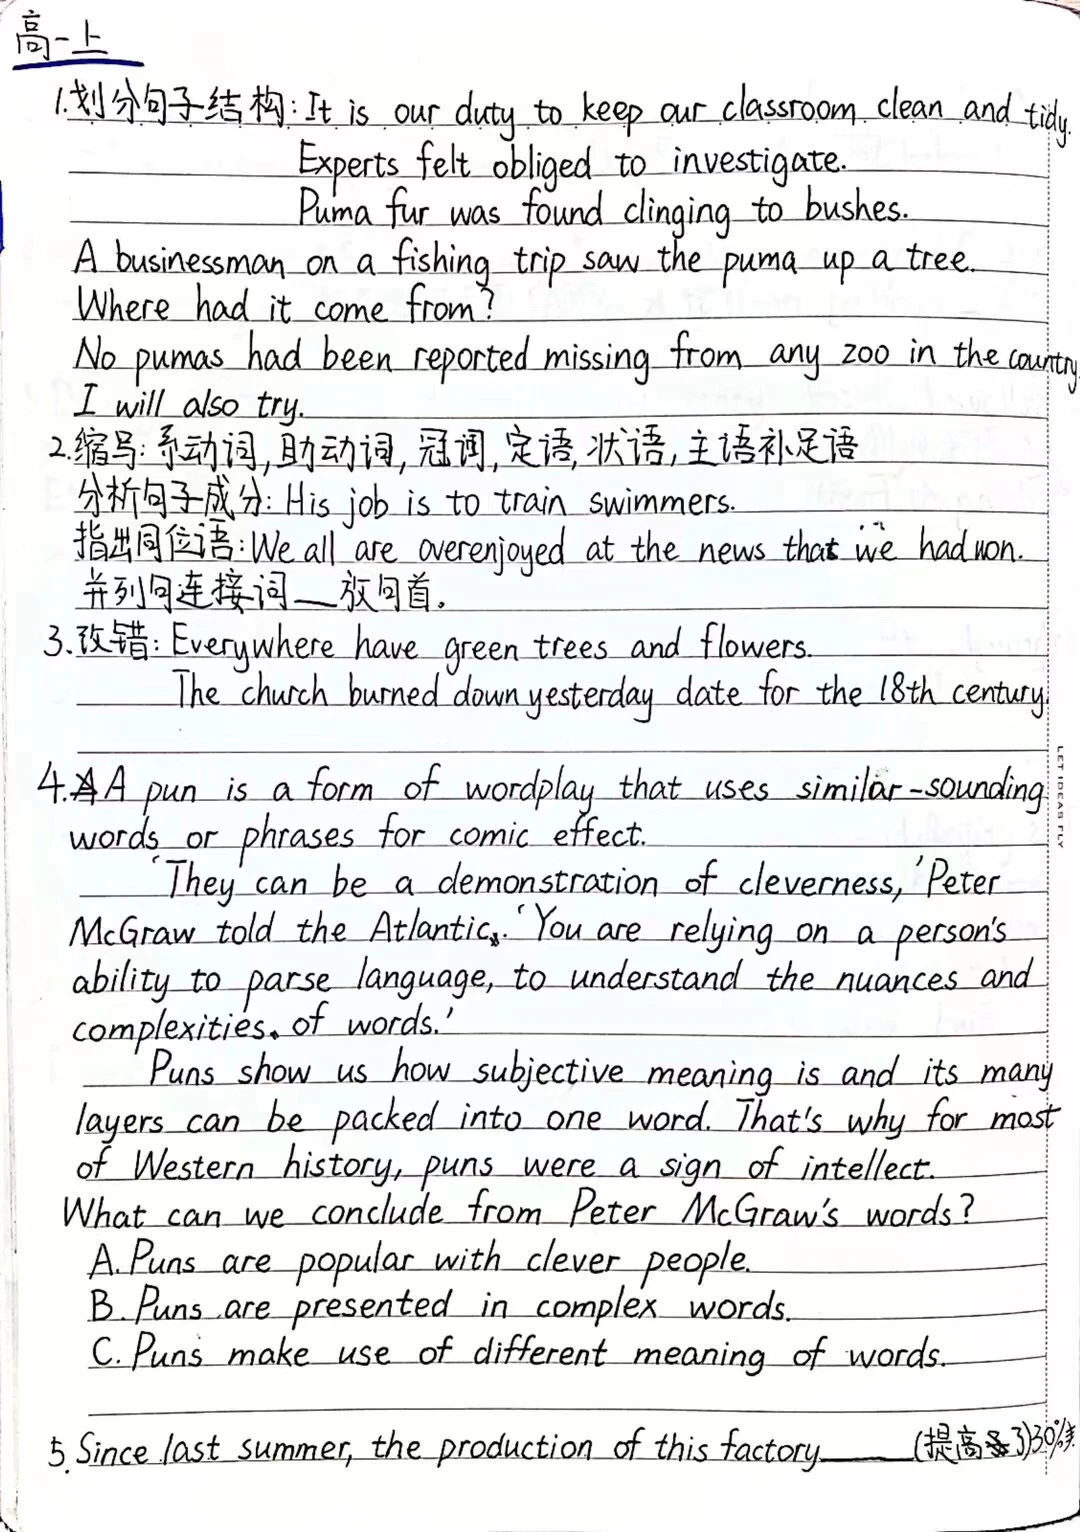 高一上
1.划分句子结构: It is our duty to keep our classroom clean and tidy.
Experts felt obliged to investigate.
Puma fur was found clinging to bushes.
A businessman on a fishing trip saw the puma up a tree.
Where had it come from?
No pumas had been reported missing from any zoo in the country
I will also try.
2.缩写:系动词,助动词,冠词,定语,状语,主语补足语
分析句子成分: His job is to train swimmers.
指出同位语: We all are overenjoyed at the news that we had won.
并列句连接词__放句首。
3.改错: Everywhere have green trees and flowers.
The church burned down yesterday date for the 18th century.
4. A pun is a form of wordplay that uses similar-sounding
words or phrases for comic effect.
'They can be a demonstration of cleverness,' Peter
McGraw told the Atlantic. 'You are relying on a person's
ability to parse language, to understand the nuances and
complexities of words.'
Puns show us how subjective meaning is and its many
layers can be packed into one word. That's why for most
of Western history, puns were a sign of intellect.
What can we conclude from Peter McGraw's words?
A. Puns are popular with clever people.
B. Puns are presented in complex words.
C. Puns make use of different meaning of words.
5. Since last summer, the production of this factory____(提高了)30%
LET IDEAS FLY